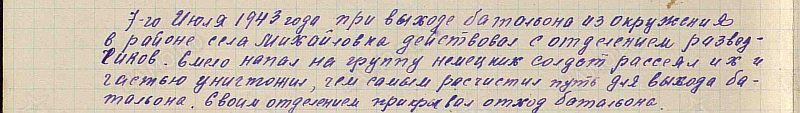 7-го Июля 1943 года при выходе батальона из окружения
в районе села Михайловка действовал с отделением развед-
чиков. Смело напал на группу немецких солдат рассеял их и
частью уничтожил, чем самым расчистил путь для выхода ба-
тальона. Своим отделением прикрывал отход батальона.